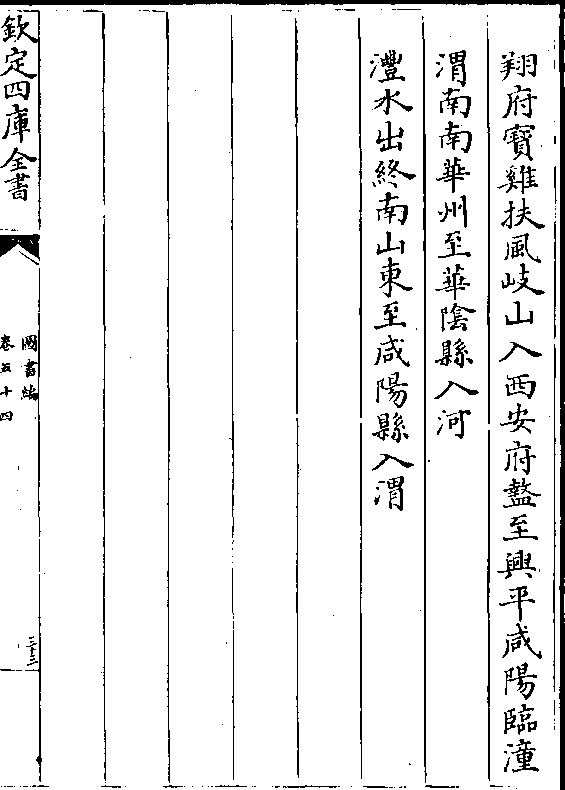 翔府寶雞扶風岐山入西安府盩至興平咸陽臨潼
渭南南華州至華陰縣入河
灃水出終南山東至咸陽縣入渭
欽定四庫全書
圖書編
卷五十四
三十三